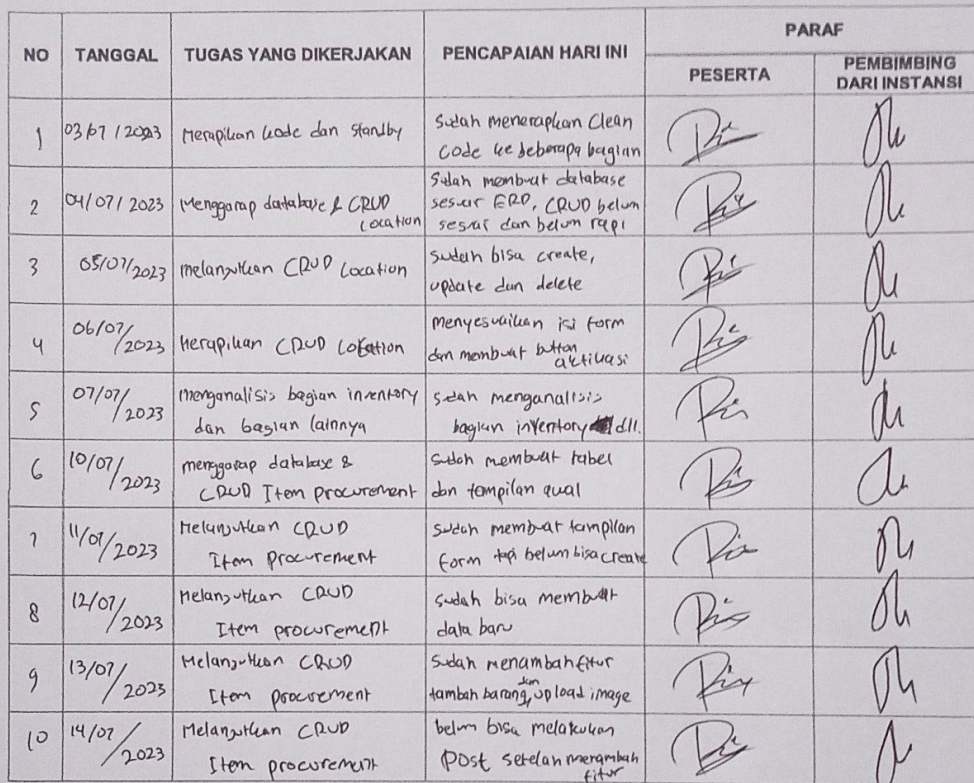 NO TANGGAL TUGAS YANG DIKERJAKAN PENCAPAIAN HARI INI PARAF
PESERTA PEMBIMBING
DARI INSTANSI
1 03/07/2023 Merapikan kode dan standby Sudah menerapkan Clean
Code ke beberapa bagian
2 04/07/2023 Menggarap database & CRUD
Location
Sudah membuat database
sesuai ERD, CRUD belum
sesuai dan belum rapi
3 05/07/2023 melanjutkan CRUD Location sudah bisa create,
update dan delete
4 06/07/
2023 Merapikan CRUD Location menyesuaikan isi form
dan membuat button
aktivasi
5 07/07/
2023 menganalisis bagian inventory
dan bagian lainnya
sudah menganalisis
bagian inventory dll.
6 10/07/
2023 menggarap database &
CRUD Item procurement
sudah membuat tabel
dan tampilan awal
7 11/07/2023 Melanjutkan CRUD
Item procurement
sudah membuat tampilan
form tapi belum bisa create
8 12/07/
2023 Melanjutkan CRUD
Item procurement
sudah bisa membuat
data baru
9 13/07/
2023 Melanjutkan CRUD
Item procurement
Sudah menambah fitur
tambah barang, dan upload image
10 14/07/
2023 Melanjutkan CRUD
Item procurement
belum bisa melakukan
Post setelah menambah
fitur